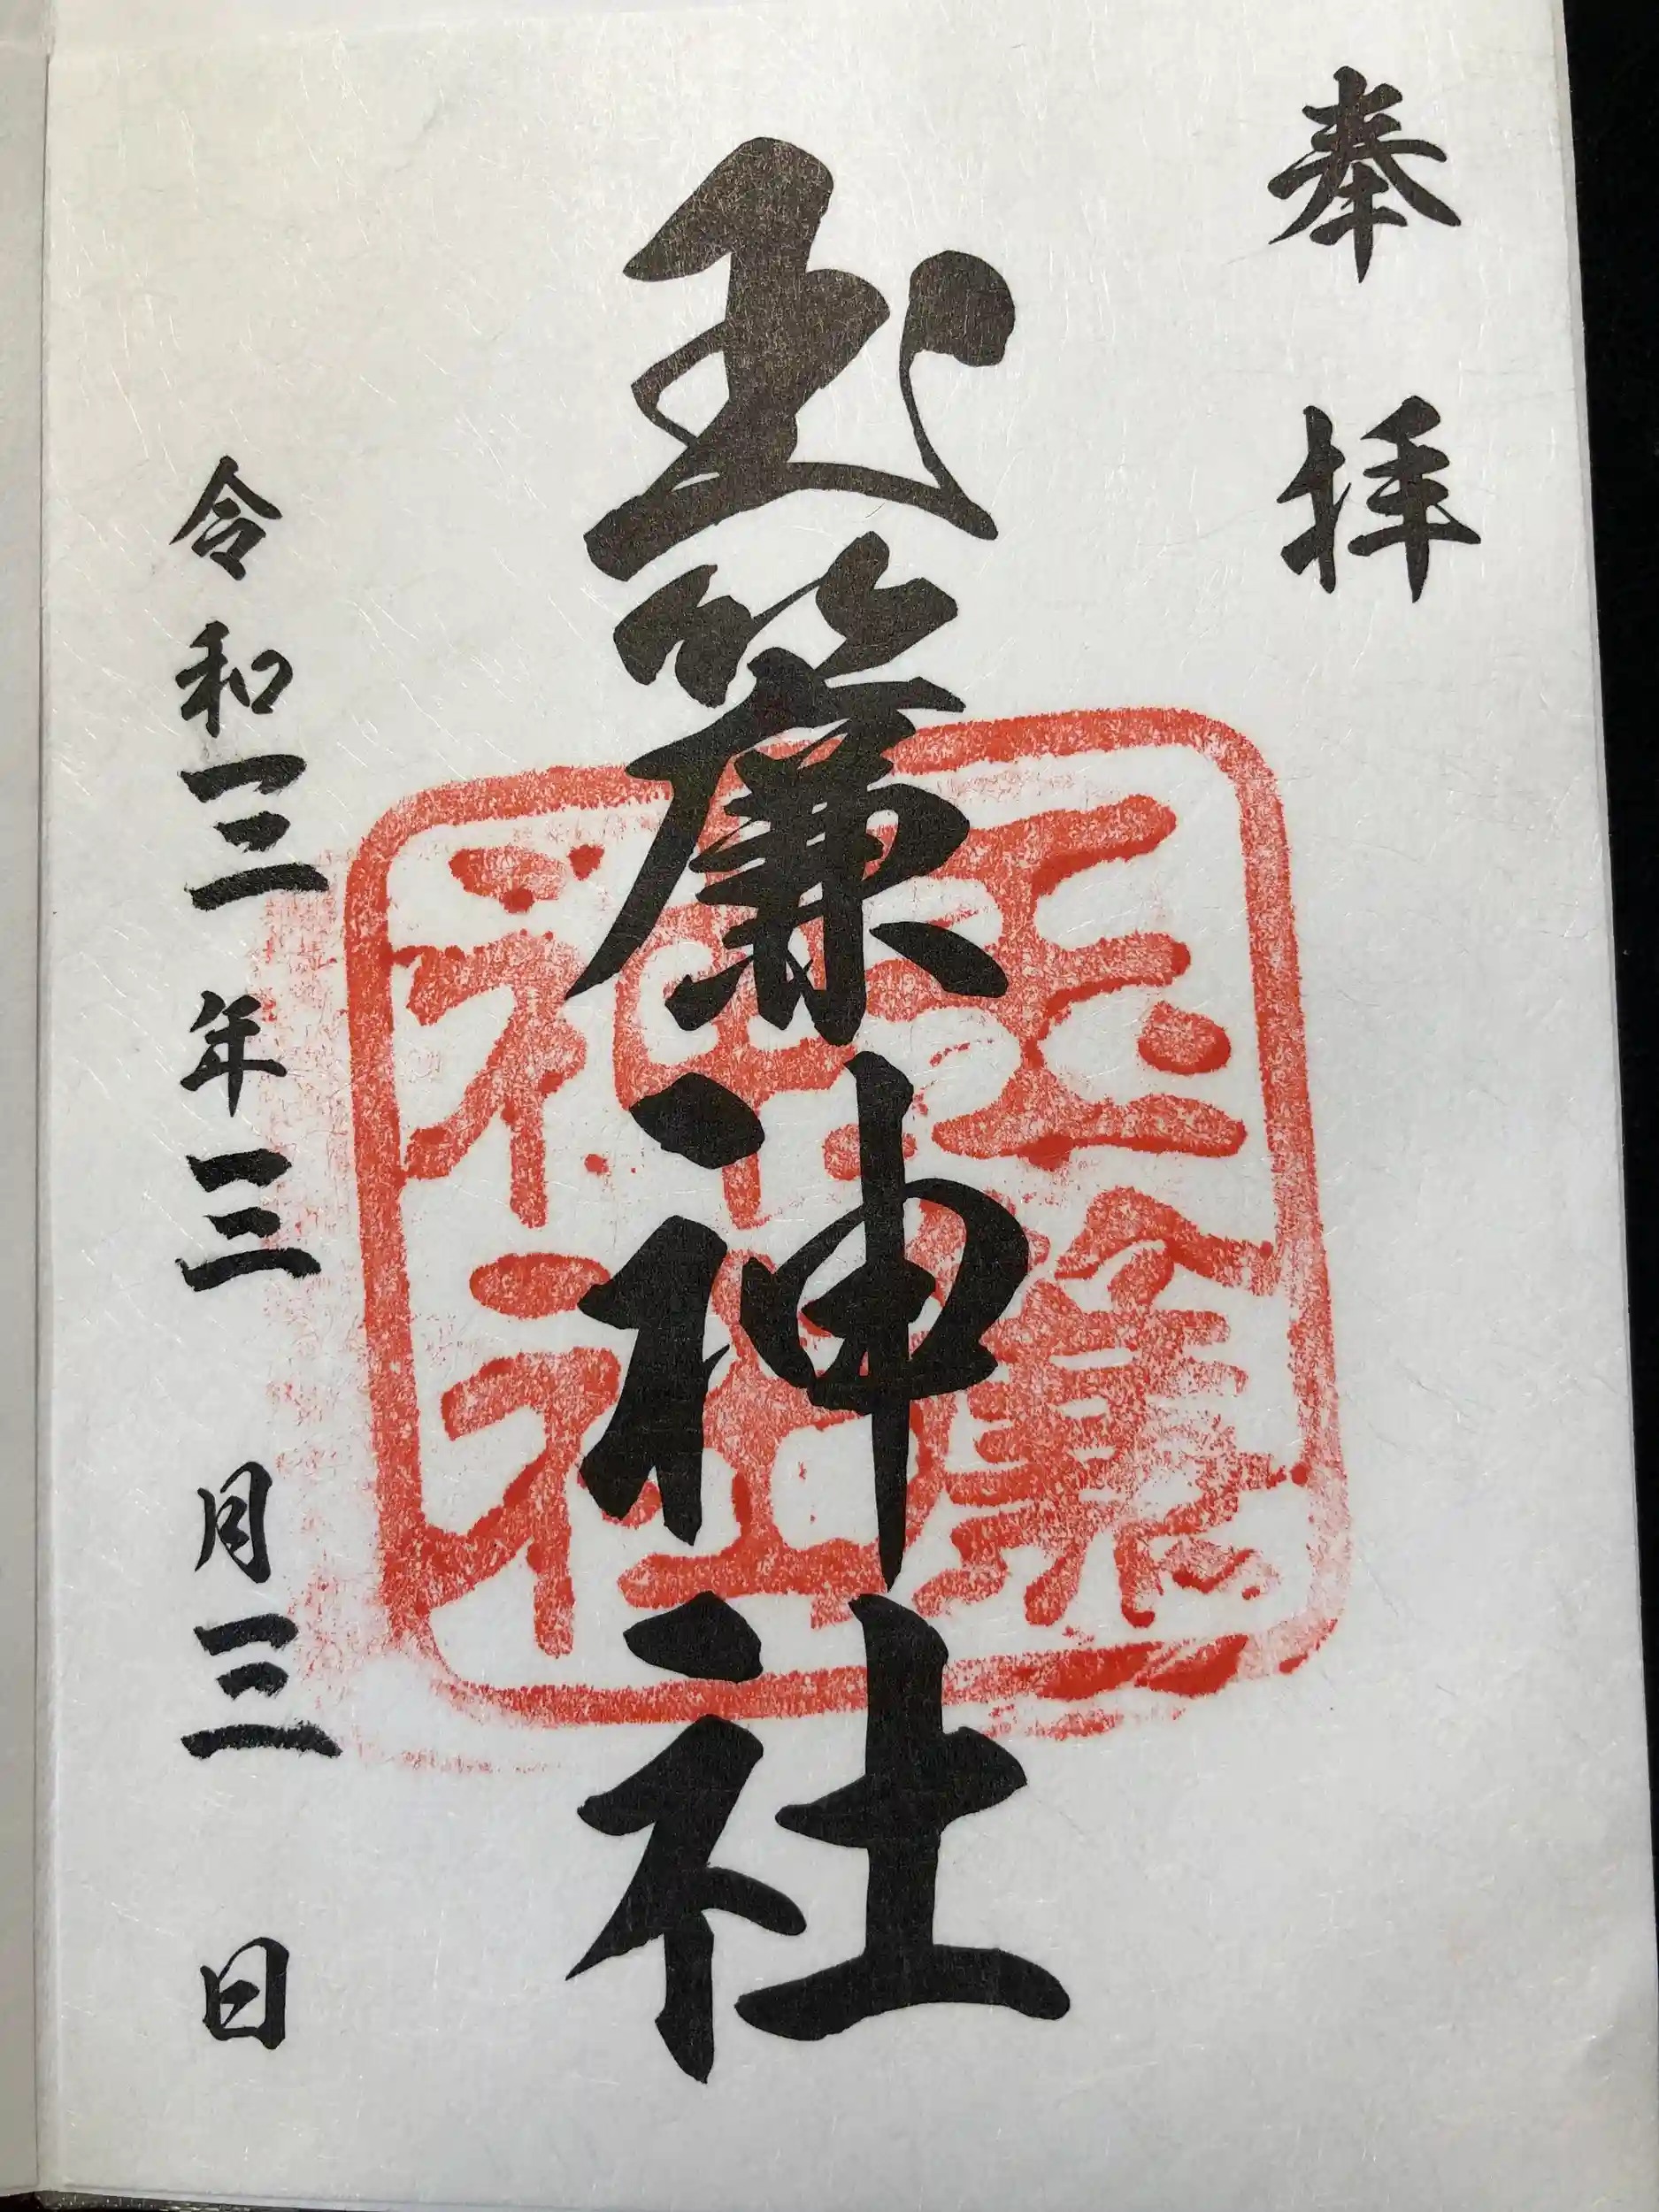 奉拝
玉簾神社
玉簾
神社
令和三年三月三日